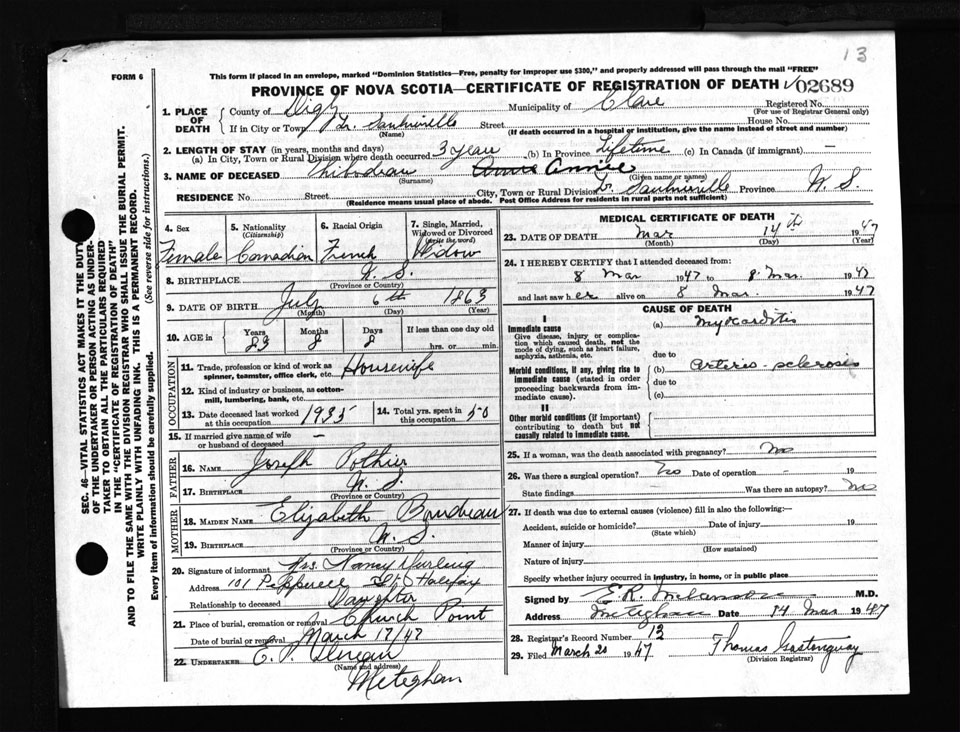 13
FORM 6
This form if placed in an envelope, marked "Dominion Statistics—Free, penalty for improper use $300," and properly addressed will pass through the mail "FREE"
PROVINCE OF NOVA SCOTIA—CERTIFICATE OF REGISTRATION OF DEATH 02689
1. PLACE OF DEATH
County of Digby Municipality of Clare Registered No.
(For use of Registrar General only)
If in City or Town Lr. Saulnierville Street House No.
(Name) (If death occurred in a hospital or institution, give the name instead of street and number)
2. LENGTH OF STAY (in years, months and days)
(a) In City, Town or Rural Division where death occurred 3 year (b) In Province Lifetime (c) In Canada (if immigrant) —
3. NAME OF DECEASED Thibodeau Annie
(Surname) (Given name or names)
RESIDENCE No. Street City, Town or Rural Division Lr. Saulnierville Province N. S.
(Residence means usual place of abode. Post Office Address for residents in rural parts not sufficient)
4. Sex Female
5. Nationality (Citizenship) Canadian
6. Racial Origin French
7. Single, Married, Widowed or Divorced (write the word) Widow
8. BIRTHPLACE N. S.
(Province or Country)
9. DATE OF BIRTH July 6th 1863
(Month) (Day) (Year)
10. AGE in Years Months Days If less than one day old
83 8 8 hrs. or min.
OCCUPATION
11. Trade, profession or kind of work as spinner, teamster, office clerk, etc. Housewife
12. Kind of industry or business, as cotton-mill, lumbering, bank, etc.
13. Date deceased last worked at this occupation 1935
14. Total yrs. spent in this occupation 50
15. If married give name of wife or husband of deceased —
FATHER
16. NAME Joseph Pothier
17. BIRTHPLACE N. S.
(Province or Country)
MOTHER
18. MAIDEN NAME Elizabeth Boudreau
19. BIRTHPLACE N. S.
(Province or Country)
20. Signature of informant Mrs. Nancy
Address 101 Pepperell St. Halifax
Relationship to deceased Daughter
21. Place of burial, cremation or removal Church Point
Date of burial or removal March 17/47
22. UNDERTAKER E. P.
(Name and address)
Meteghan
MEDICAL CERTIFICATE OF DEATH
23. DATE OF DEATH Mar 14th 1947
(Month) (Day) (Year)
24. I HEREBY CERTIFY that I attended deceased from:
8 Mar 1947 to 8 Mar. 1947
and last saw her alive on 8 Mar. 1947
CAUSE OF DEATH
I
Immediate cause
Give disease, injury or complication which caused death, not the mode of dying, such as heart failure, asphyxia, asthenia, etc.
(a) Myocarditis
due to
Morbid conditions, if any, giving rise to immediate cause (stated in order proceeding backwards from immediate cause).
(b) Arterio-sclerosis
due to
(c)
II
Other morbid conditions (if important) contributing to death but not causally related to immediate cause.
25. If a woman, was the death associated with pregnancy? No
26. Was there a surgical operation? No Date of operation — 19
State findings Was there an autopsy? No
27. If death was due to external causes (violence) fill in also the following:—
Accident, suicide or homicide? Date of injury 19
(State which)
Manner of injury
(How sustained)
Nature of injury
Specify whether injury occurred in industry, in home, or in public place
Signed by E. R. Melanson M.D.
Address Meteghan Date 14 Mar 1947
28. Registrar's Record Number 13
29. Filed March 20 1947 Thomas Gastonguay
(Division Registrar)
SEC. 46—VITAL STATISTICS ACT MAKES IT THE DUTY
OF THE UNDERTAKER OR PERSON ACTING AS UNDERTAKER TO OBTAIN ALL THE PARTICULARS REQUIRED
IN THE "CERTIFICATE OF REGISTRATION OF DEATH"
AND TO FILE THE SAME WITH THE DIVISION REGISTRAR WHO SHALL ISSUE THE BURIAL PERMIT.
WRITE PLAINLY WITH UNFADING INK. THIS IS A PERMANENT RECORD.
Every item of information should be carefully supplied. (See reverse side for instructions.)